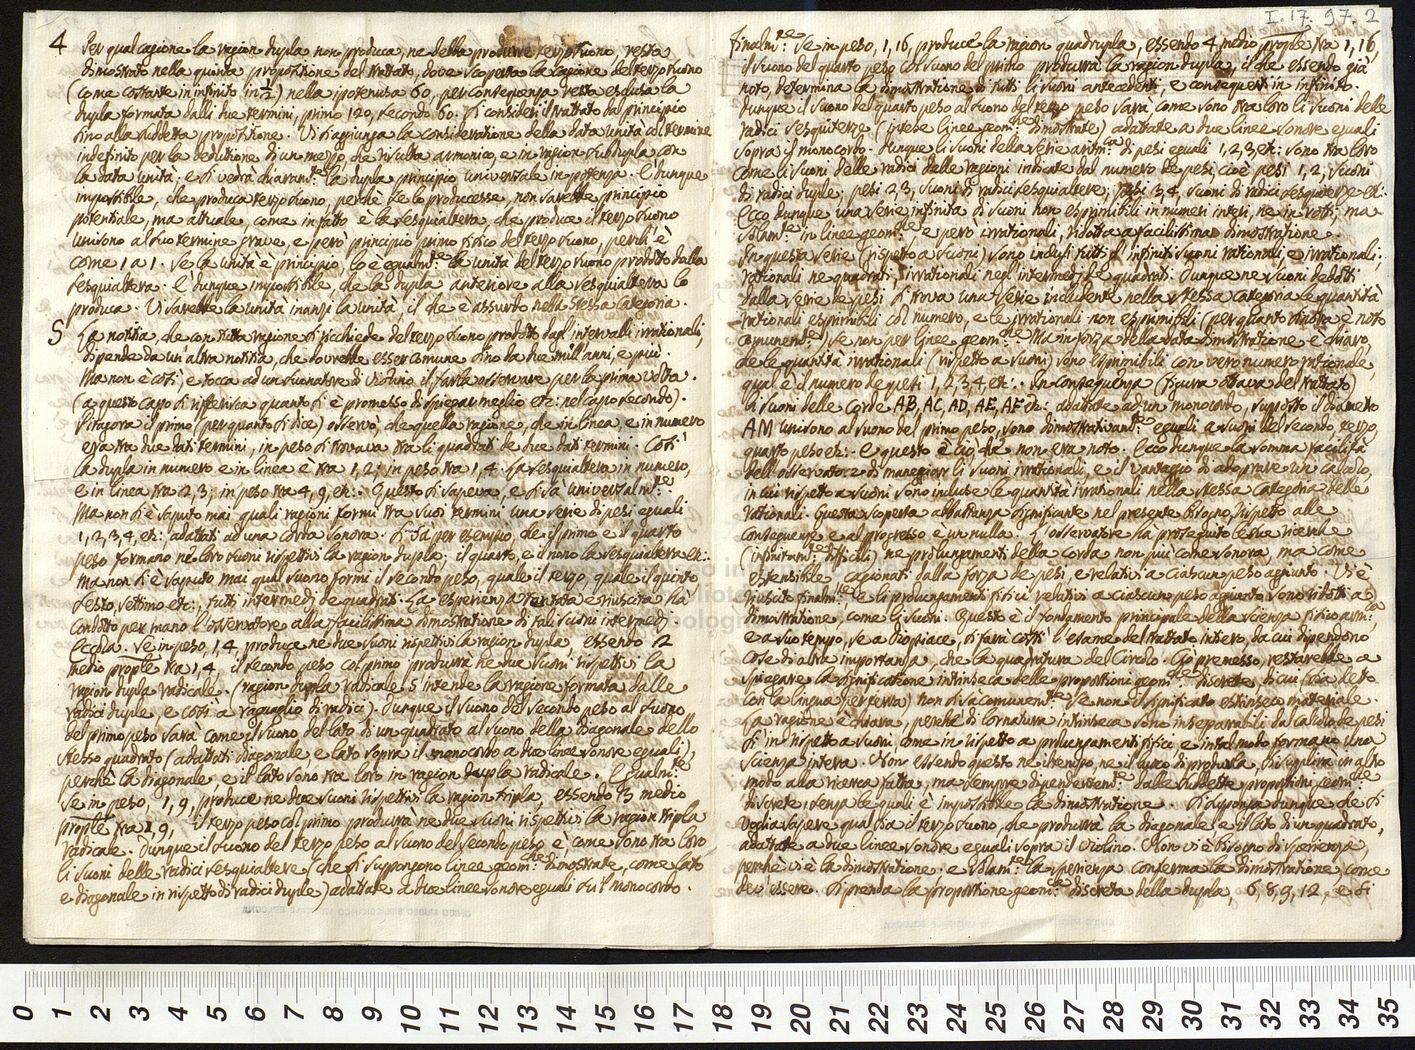 I.17.97.2
4 Per qual cagione la ragion dupla non produca, ne debba produrre terzo suono, resta
dimostrato nella quinta proposizione del trattato, dove scoperta la cagione del terzo suono
(come costante in infinito in 1/2) nella ipotenusa 60, per conseguenza resta esclusa la
dupla formata dalli due termini, primo 120, secondo 60. Si consideri il trattato dal principio
sino alla suddetta proposizione. Vi si aggiunga la considerazione della data unità col termine
indefinito per la deduzione di un mezzo, che risulta armonico, e in ragion subdupla con
la data unità. e si vedrà chiaram.te la dupla principio universale in potenza. È dunque
impossibile, che produca terzo suono, perchè se lo producesse, non sarebbe principio
potenziale, ma attuale, come in fatto è la sesquialtera, che produce il terzo suono
unisono al suo termine grave, e però principio primo fisico del terzo suono, perchè è
come 1 a 1. Se la unità è principio, lo è egualm.te la unità del terzo suono prodotto dalla
sesquialtera. È dunque impossibile, che la dupla anteriore alla sesquialtera lo
produca. Vi sarebbe la unità inanzi la unità, il che è assurdo nella stessa categoria.
5 La notizia, che con tutta ragione si richiede del terzo suono prodotto dagl'intervalli irrazionali,
dipende da un'altra notizia, che dovrebbe esser comune sino da due mill'anni, e più.
Ma non è così, e tocca ad un suonatore di Violino il farla osservare per la prima volta.
(a questo capo si riferisca quanto si è promesso di spiegar meglio etc: nel capo secondo).
Pitagora il primo (per quanto si dice) osservò, che quella ragione, che in linea, e in numero
era tra due dati termini, in peso si trovava tra li quadrati de due dati termini. Così
la dupla in numero e in linea è tra 1, 2; in peso tra 1, 4. La sesquialtera in numero,
e in linea tra 2, 3; in peso tra 4, 9, etc:. Questo si sapeva, e si sà universalm.te
Ma non si è saputo mai quali ragioni formi tra suoi termini una serie di pesi eguali
1, 2, 3, 4, etc: adattati ad una corda sonora. Si sà per esempio, che il primo e il quarto
peso formano ne loro suoni rispettivi la ragion dupla; il quarto, e il nono la sesquialtera etc:
Ma non si è saputo mai qual suono formi il secondo peso, quale il terzo, quale il quinto
sesto, settimo etc:, tutti intermedj de quadrati. La esperienza tentata e riuscita hà
condotto per mano l'osservatore alla facilissima dimostrazione di tali suoni intermedj.
Eccola. Se in peso, 1, 4, produce ne due suoni rispettivi la ragion dupla, essendo 2
medio propl.e tra 1, 4, il secondo peso col primo produrrà ne due suoni rispettivi la
ragion dupla radicale. (ragion dupla radicale s'intende la ragione formata dalle
radici duple, e così a ragguaglio di radici). Dunque il suono del secondo peso al suono
del primo peso sarà come il suono del lato di un quadrato al suono della diagonale dello
stesso quadrato (adattati diagonale, e lato sopra il monocordo a due linee sonore eguali),
perchè la diagonale, e il lato sono tra loro in ragion dupla radicale. Egualm.te
se in peso, 1, 9, produce ne due suoni rispettivi la ragion tripla, essendo 3 medio
propl.e tra 1, 9, il terzo peso col primo produrrà ne due suoni rispettivi la ragion tripla
radicale. Dunque il suono del terzo peso al suono del secondo peso è come sono tra loro
li suoni delle radici sesquialtere (che si suppongono linee geom.che dimostrate, come lato
e diagonale in rispetto di radici duple) adattate a due linee sonore eguali su'l monocordo.
Finalm.te: Se in peso, 1, 16, produce la ragion quadrupla, essendo 4 medio propl.e tra 1, 16,
il suono del quarto peso col suono del primo produrrà la ragion dupla, il che essendo già
noto, determina la dimostrazione di tutti li suoni antecedenti, e conseguenti in infinito.
Dunque il suono del quarto peso al suono del terzo peso sarà come sono tra loro li suoni delle
radici sesquiterze (intese linee geom.che dimostrate) adattate a due linee sonore eguali
sopra il monocordo. Dunque li suoni della serie aritm.ca di pesi eguali 1, 2, 3, etc: sono tra loro
come li suoni delle radici dalle ragioni indicate dal numero de pesi, cioè pesi 1, 2, suoni
di radici duple, pesi 2, 3, suoni di radici sesquialtere, pesi 3, 4, suoni di radici sesquiterze etc:
Ecco dunque una serie infinita di suoni non esprimibili in numeri interi, ne in rotti, ma
solam.te in linee geom.che, e però irrazionali, ridotta a facilissima dimostrazione.
In questa serie (rispetto a suoni) sono inclusi tutti gl'infiniti suoni razionali, e irrazionali;
razionali ne quadrati, irrazionali negl'intermedj de quadrati. Dunque ne suoni dedotti
dalla serie de pesi si trova una serie includente nella stessa categoria le quantità
razionali esprimibili col numero, e le irrazionali non esprimibili (per quanto sinora è noto
comunem.te) se non per linee geom.che Ma in forza della data dimostrazione è chiaro,
che le quantità irrazionali (rispetto a suoni) sono esprimibili con vero numero razionale,
qual'è il numero de pesi 1, 2, 3, 4, etc:. In conseguenza (figura ottava del trattato)
li suoni delle corde AB, AC, AD, AE, AF etc: adattate ad un monocordo, supposto il diametro
AM unisono al suono del primo peso, sono dimostrativam.te eguali a suoni del secondo, terzo,
quarto peso etc:. E questo è ciò che non era noto. Ecco dunque la somma facilità
dell'osservatore di maneggiare li suoni irrazionali, e il vantaggio di adoprare un calcolo,
in cui rispetto a suoni sono incluse le quantità irrazionali nella stessa categoria delle
razionali. Questa scoperta abbastanza significante nel presente bisogno, rispetto alle
conseguenze e al progresso è un nulla. L'osservatore hà proseguito le sue ricerche
(infinitam.te difficili) ne prolungamenti della corda non più come sonora, ma come
estensibile, cagionati dalla forza de pesi, e relativi a ciascun peso aggiunto. Vi è
riuscito finalm.te e li prolungamenti fisici relativi a ciascun peso aggiunto sono ridotti a
dimostrazione, come li suoni. Questo è il fondamento principale della scienza fisico arm.ca,
e a suo tempo, se a Dio piace, si farà cotti l'esame del trattato intero, da cui dipendono
cose di altra importanza, che la quadratura del Circolo. Ciò premesso, resterebbe a
spiegare la significazione intrinseca delle proporzioni geom.che discrete, di cui (sia detto
con la lingua per terra) non si sà comunem.te se non il significato estrinseco materiale.
La ragione è chiara, perchè di lor natura intrinseca sono inseparabili da calcolo de pesi
sì in rispetto a suoni, come in rispetto a prolungamenti fisici, e in tal modo formano una
scienza intera. Non essendo questo ne il tempo, ne il luogo di produrla, si supplirà in altro
modo alla ricerca fatta, ma sempre dipendentem.te dalle suddette proporzioni geom.che
discrete, senza le quali è impossibile la dimostrazione. Si supponga dunque che si
voglia sapere qual sia il terzo suono, che produrrà la diagonale e il lato di un quadrato,
adattate a due linee sonore eguali sopra il violino. Non vi è bisogno di sperienza,
perchè vi è la dimostrazione, e solam.te la sperienza conferma la dimostrazione, come
dev'essere. Si prenda la proporzione geom.ca discreta della dupla, 6, 8, 9, 12, e si
0 1 2 3 4 5 6 7 8 9 10 11 12 13 14 15 16 17 18 19 20 21 22 23 24 25 26 27 28 29 30 31 32 33 34 35